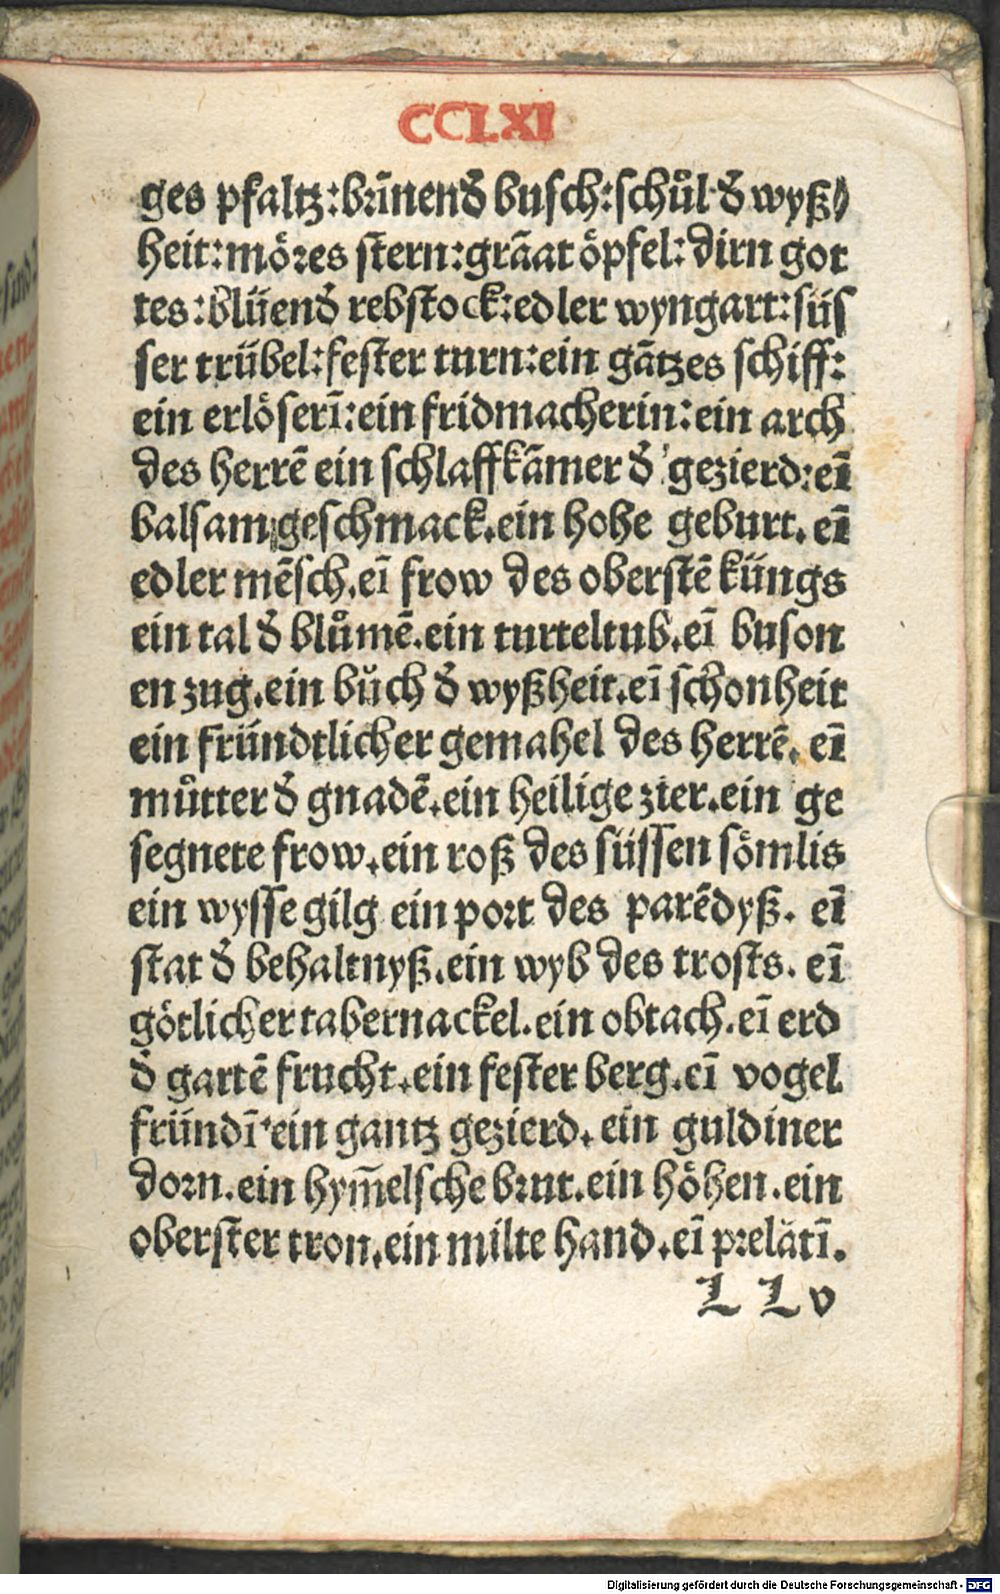 CCLXI
ges pfaltz:brīnend̄ busch:schůl d̄ wyß⸗
heit:möres stern:grāat öpfel:dirn got
tes:blüend̄ rebstock:edler wyngart:süs
ser trübel:fester turn:ein gātzes schiff:
ein erlöserī:ein fridmacherin:ein arch
des herrē ein schlaffkāmer d̄ gezierd:eī
balsam geschmack.ein hohe geburt.eī
edler mēsch.eī frow des oberstē küngs
ein tal d̄ blůmē.ein turteltub.eī buson
en zug.ein bůch d̄ wyßheit.eī schonheit
ein fründtlicher gemahel des herrē.eī
můtter d̄ gnadē.ein heilige zier.ein ge
segnete frow.ein roß des süssen sömlis
ein wysse gilg ein port des parēdyß. eī
stat d̄ behaltnyß.ein wyb des trosts. eī
götlicher tabernackel.ein obtach.eī erd
d̄ gartē frucht.ein fester berg.eī vogel
fründī·ein gantz gezierd.ein guldiner
dorn.ein hym̄elsche brut.ein höhen.ein
oberster tron.ein milte hand.eī prelätī.
LL v
Digitalisierung gefördert durch die Deutsche Forschungsgemeinschaft - DFG